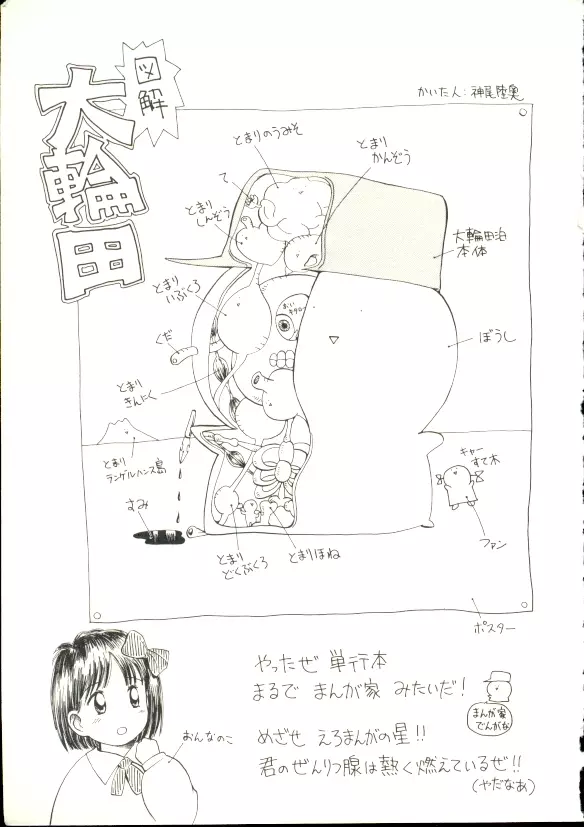 図解
大輪田
かいた人：神尾陸奥
とまりのうみそ
とまり
かんぞう
て
とまり
しんぞう
大輪田泊
本体
とまり
いぶくろ
おーい
キタロー
ぼうし
くだ
とまり
きんにく
とまり
ランゲルハンス島
キャー
すて木
すみ
ファン
とまり
どくぶくろ
とまりほね
ポスター
やったぜ 単行本
まるで まんが家 みたいだ！
まんが家
でんがな
おんなのこ
めざせ えろまんがの星！！
君のぜんりつ腺は熱く燃えているぜ！！
（やだなあ）